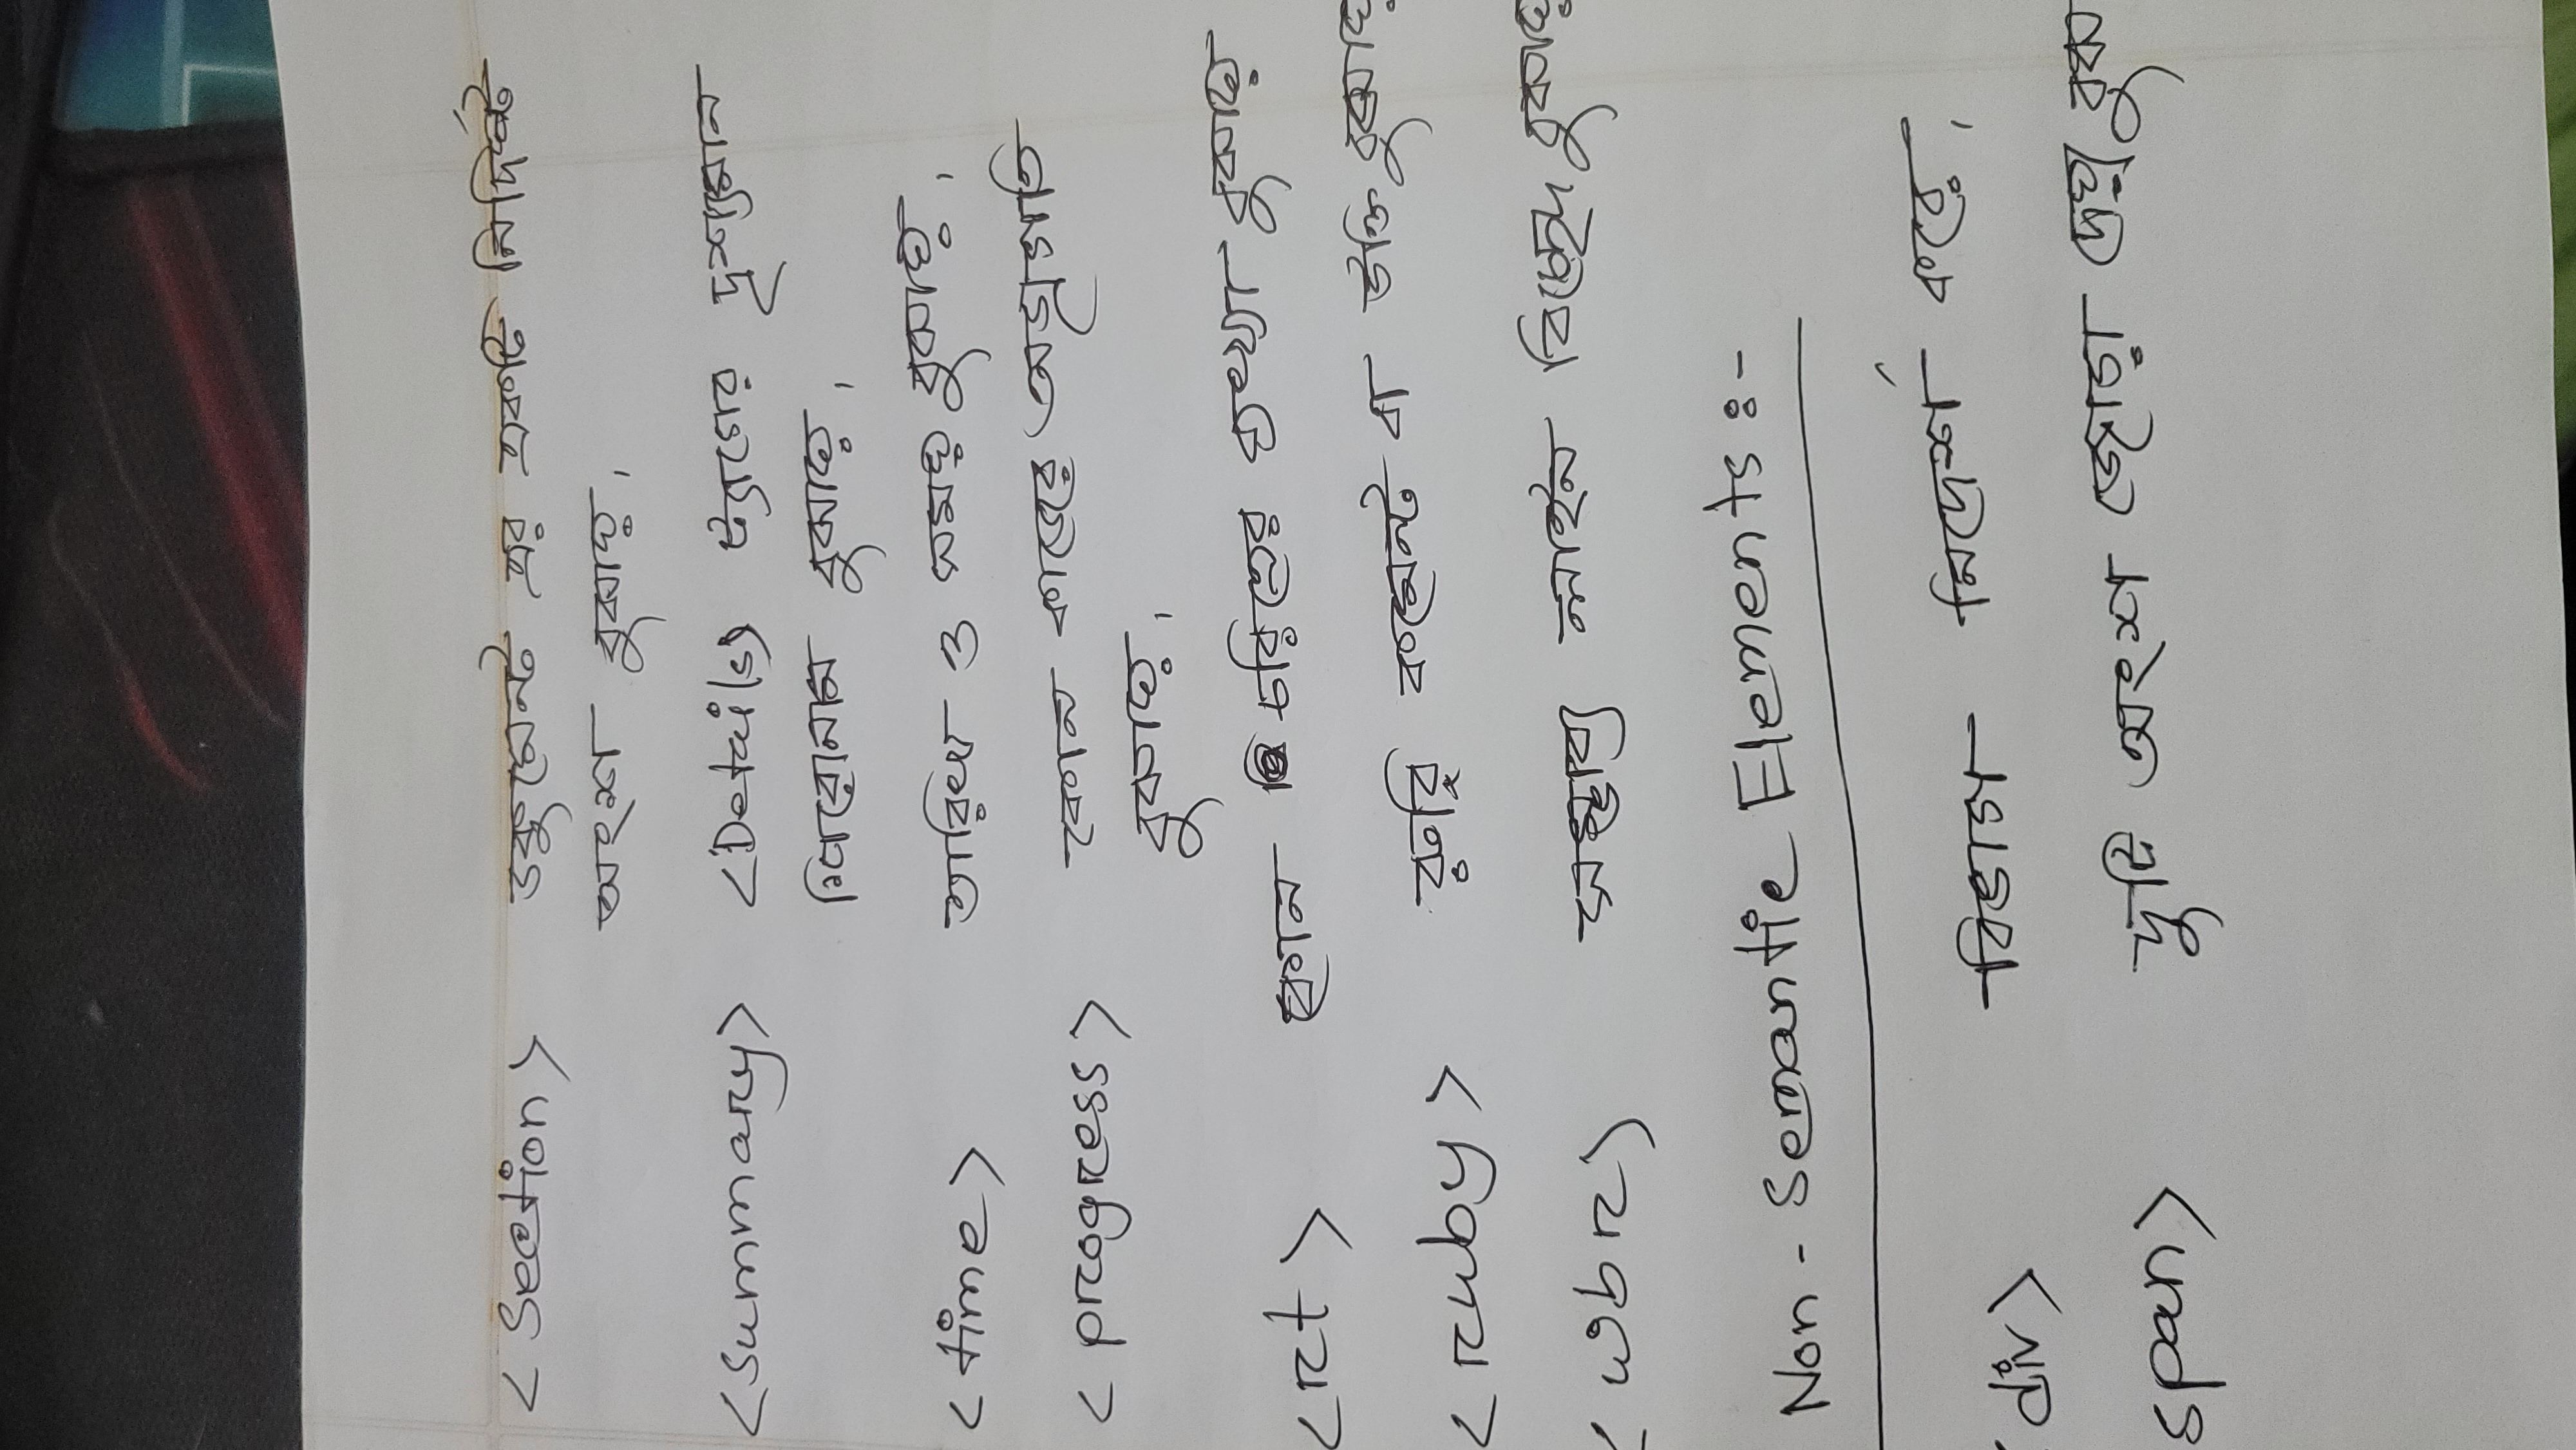 <section> ডকুমেন্ট এর একটি নির্দিষ্ট
অংশ বুঝায়।
<summary> <Details> ট্যাগের দৃশ্যমান
শিরোনাম বুঝায়।
<time> তারিখ ও সময় বুঝায়।
<progress> কোন কাজের অগ্রগতি
বুঝায়।
<rt> কোন চরিত্রের ব্যখ্যা বুঝায়
<ruby> রুবি কমেন্ট বা উক্তি বুঝায়
<wbr> সম্ভাব্য লাইন বিচ্ছেদ বুঝায়
Non - Semantic Elements :-
div> বিভাগ নির্দেশ করে।
span> দুটি অংশ জোড়া দেয়া বুঝ